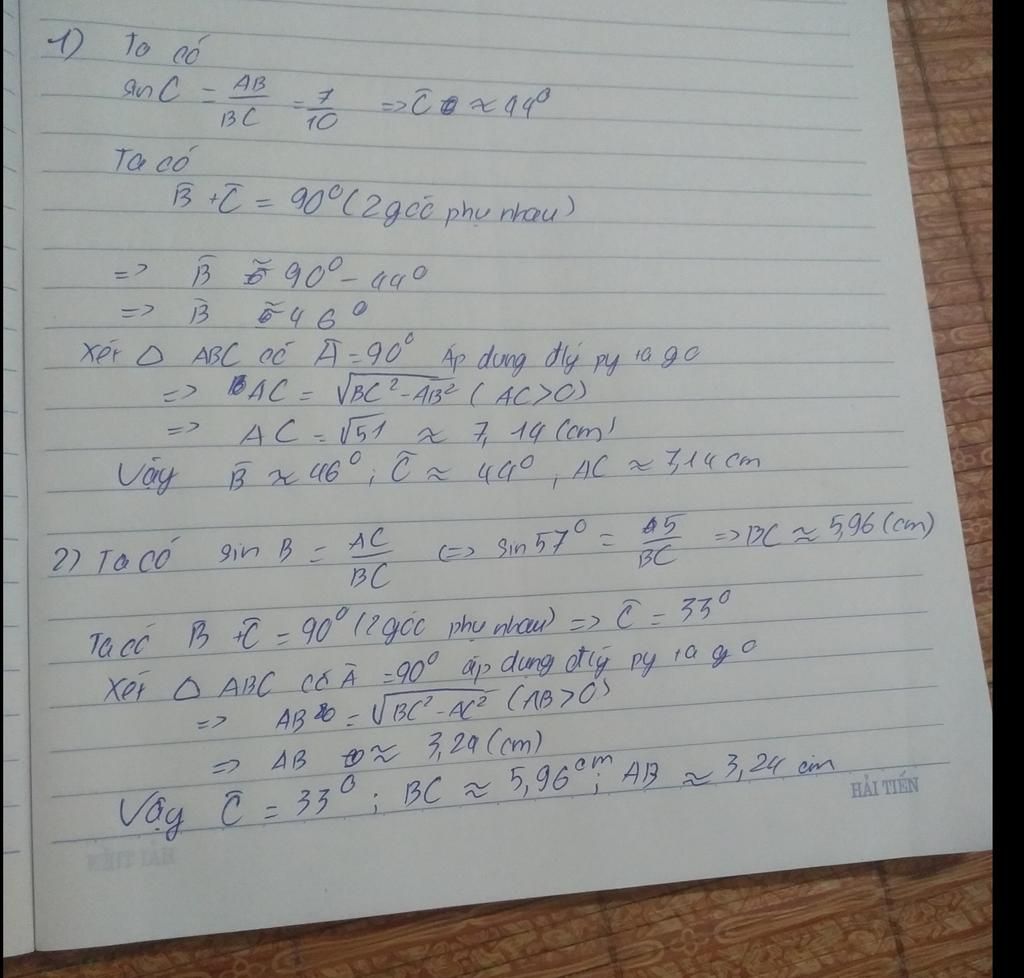 1) Ta có
sin C = AB/BC = 7/10 => C̄ ≈ 44⁰
Ta có
B̄ + C̄ = 90⁰ (2 góc phụ nhau)
=> B̄ ≈ 90⁰ - 44⁰
=> B̄ ≈ 46⁰
Xét △ ABC có Ā = 90⁰ Áp dụng đlý py ta go
=> AC = √(BC² - AB²) (AC > 0)
=> AC = √51 ≈ 7,14 (cm)
Vậy B̄ ≈ 46⁰ ; C̄ ≈ 44⁰ , AC ≈ 7,14 cm
2) Ta có sin B = AC/BC <=> sin 57⁰ = 5/BC => BC ≈ 5,96 (cm)
Ta có B̄ + C̄ = 90⁰ (2 góc phụ nhau) => C̄ = 33⁰
Xét △ ABC có Ā = 90⁰ áp dụng đlý py ta go
=> AB = √(BC² - AC²) (AB > 0)
=> AB ≈ 3,24 (cm)
Vậy C̄ = 33⁰ ; BC ≈ 5,96 cm ; AB ≈ 3,24 cm
HẢI TIẾN